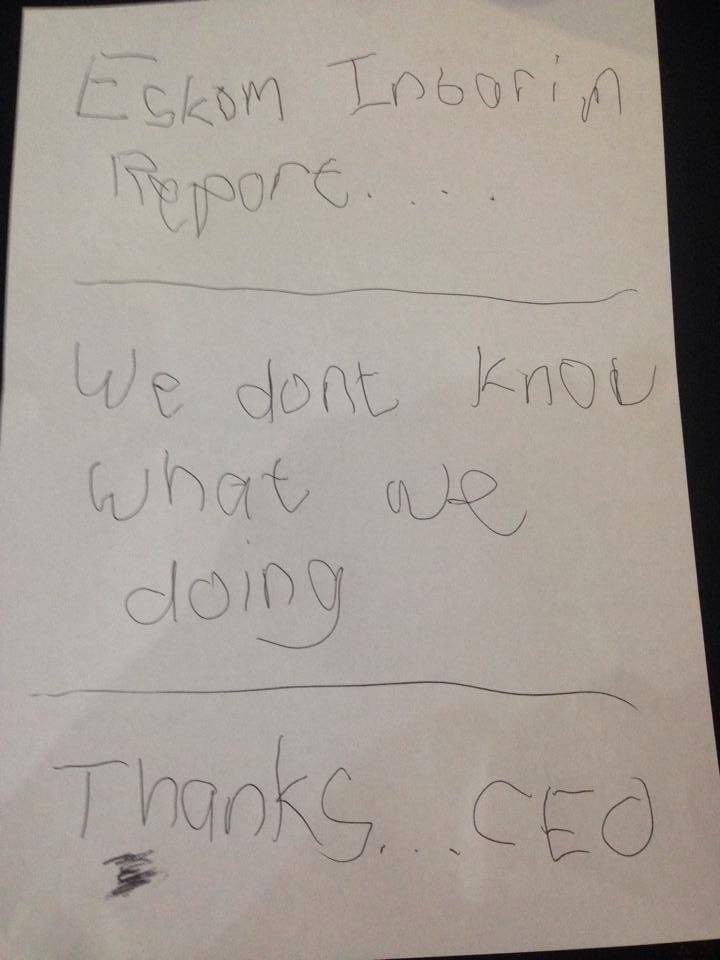 Eskom Intorim
Report....
We dont know
what we
doing
Thanks...CEO